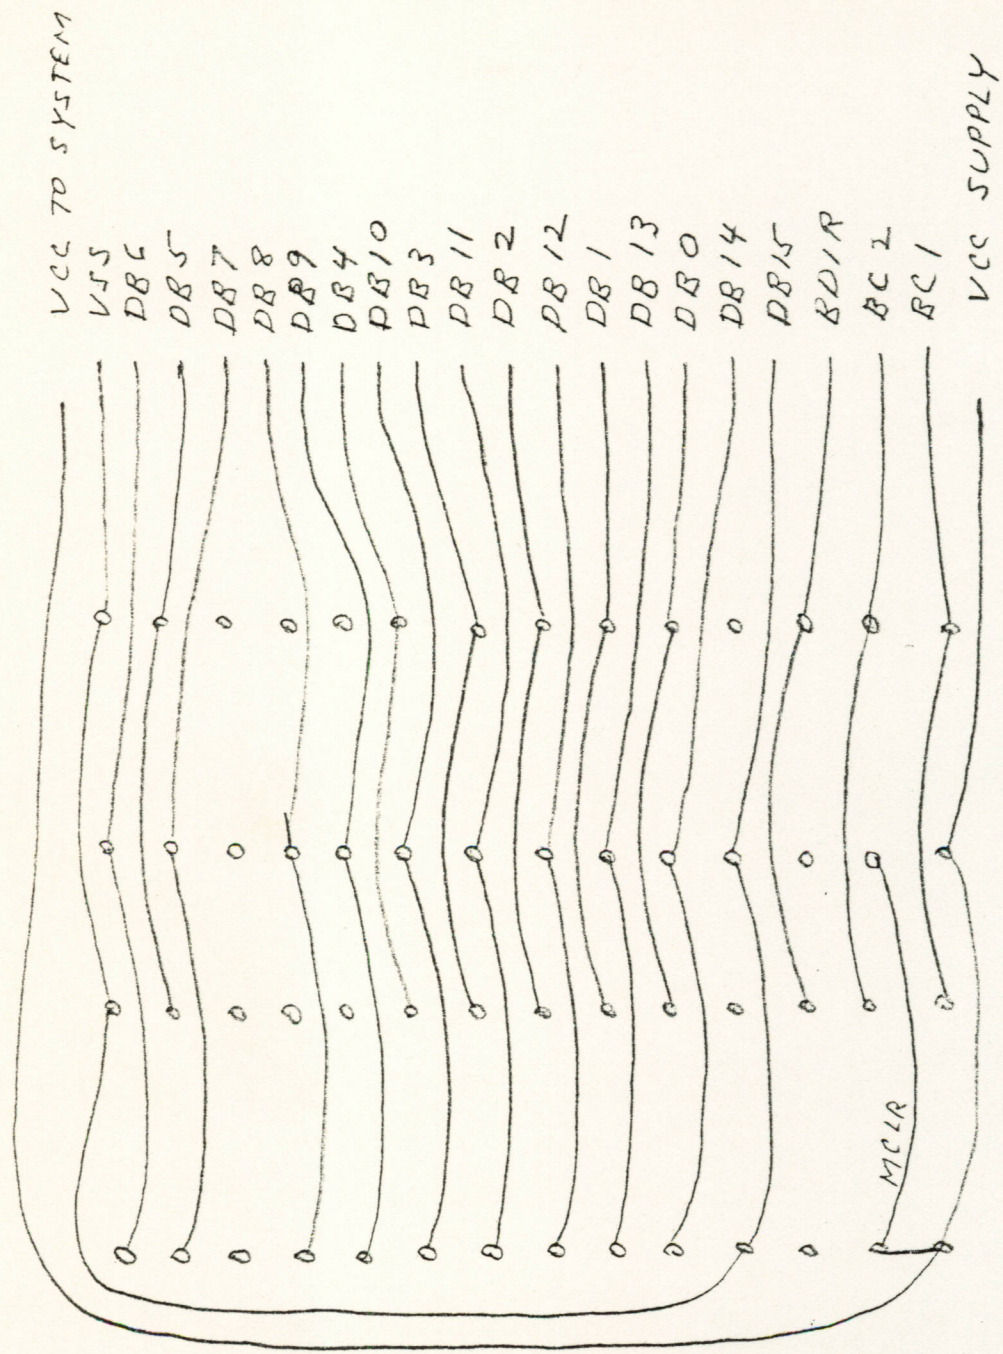 VCC TO SYSTEM
VSS
DB6
DB5
DB7
DB8
DB9
DB4
DB10
DB3
DB11
DB2
DB12
DB1
DB13
DB0
DB14
DB15
BDIR
BC2
BC1
VCC SUPPLY
MCLR